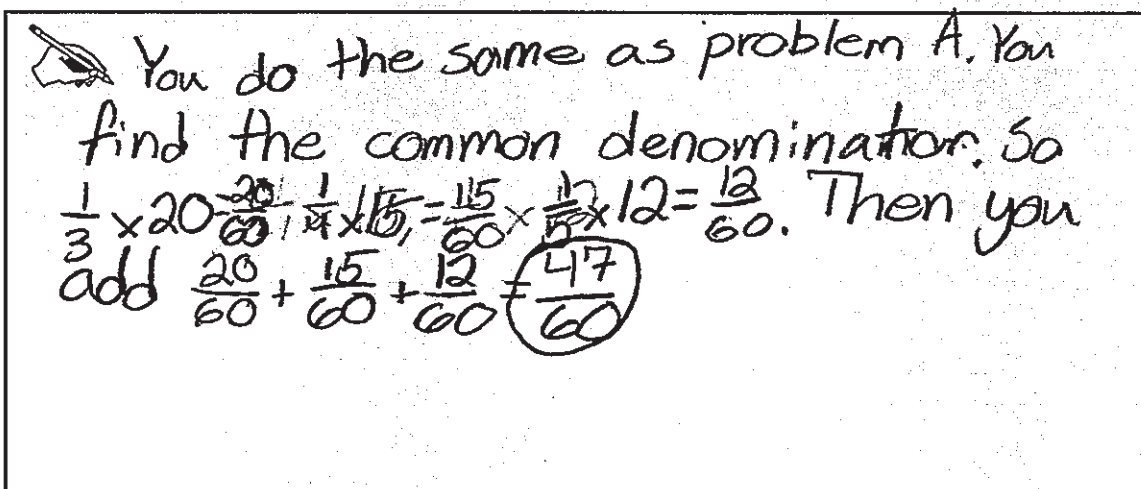 You do the same as problem A. You
find the common denominator. So
1/3 x 20 = 20/60, 1/4 x 15, = 15/60 x 1/5 x 12 = 12/60. Then you
add 20/60 + 15/60 + 12/60 = 47/60